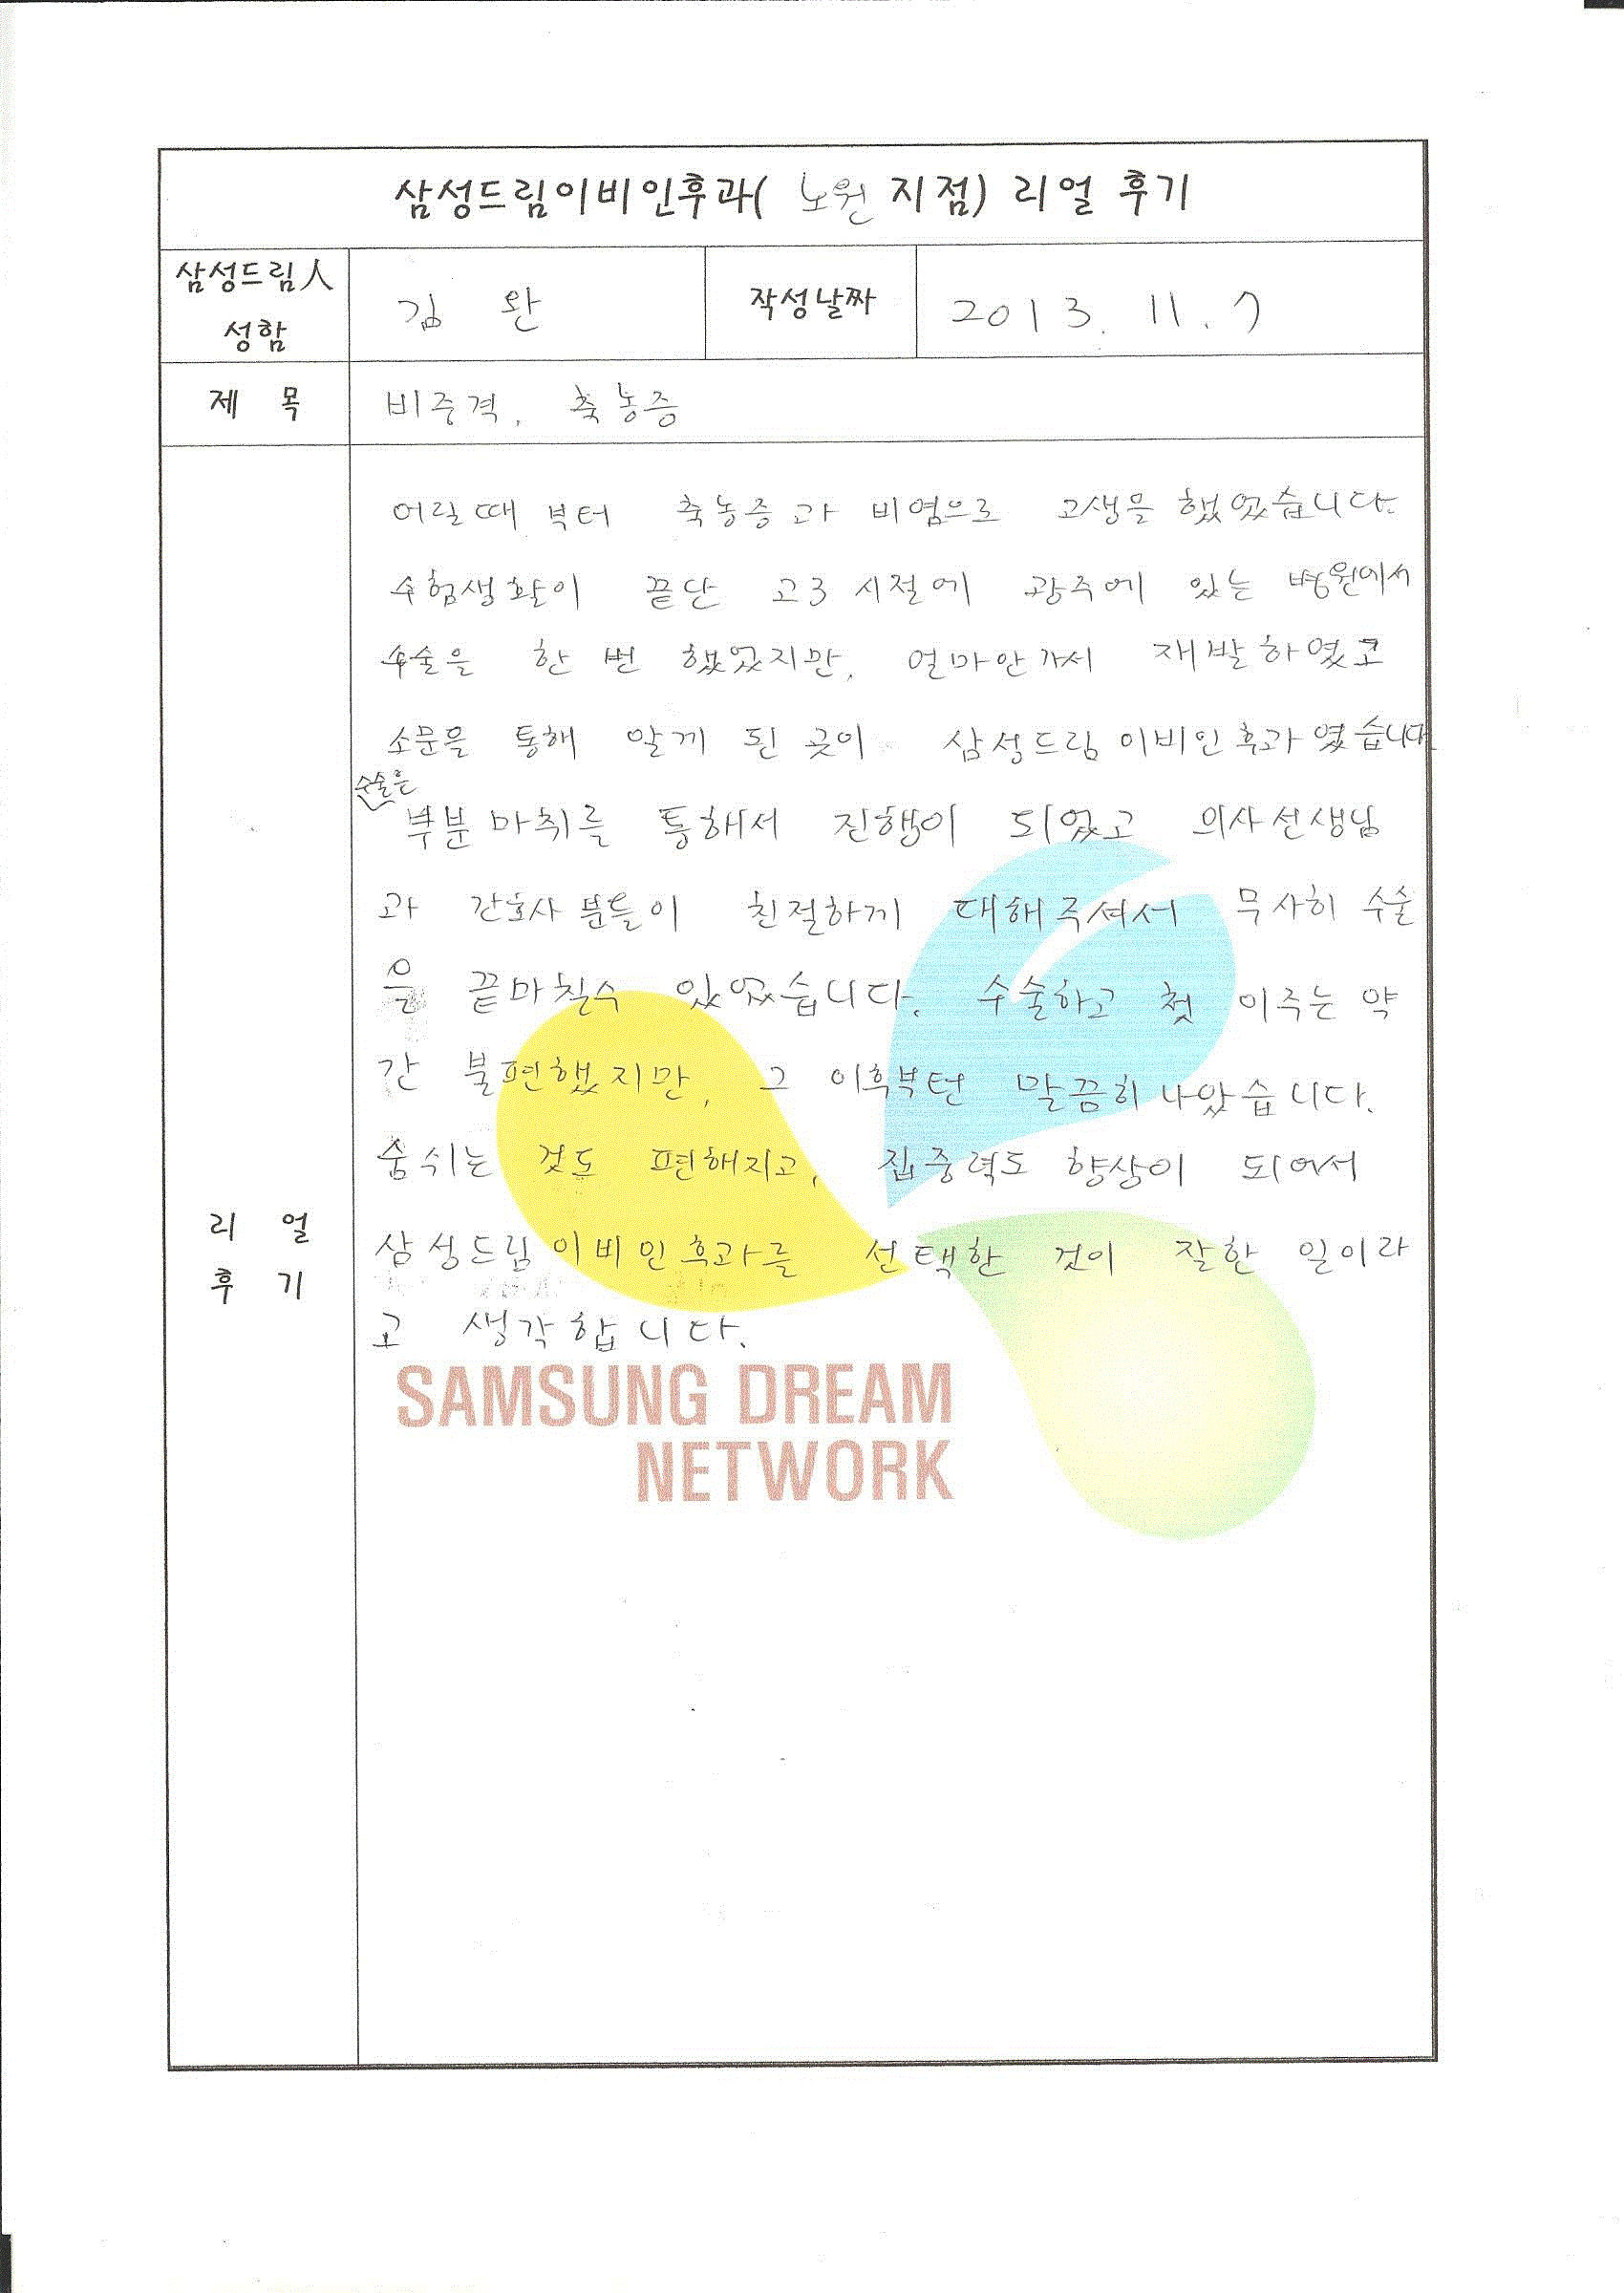 삼성드림이비인후과( 노원 지점) 리얼 후기
삼성드림人
성함
김 완
작성날짜
2013. 11. 7
제 목
비중격, 축농증
리 얼
후 기
어릴때 부터 축농증과 비염으로 고생을 했었습니다.
수험생활이 끝난 고3 시절에 광주에 있는 병원에서
수술을 한 번 했었지만, 얼마안가서 재발하였고
소문을 통해 알게 된 곳이 삼성드림이비인후과였습니다
수술은
부분마취를 통해서 진행이 되었고 의사선생님
과 간호사분들이 친절하게 대해주셔서 무사히 수술
을 끝마칠수 있었습니다. 수술하고 첫 이주는 약
간 불편했지만, 그 이후부턴 말끔히 나았습니다.
숨쉬는 것도 편해지고, 집중력도 향상이 되어서
삼성드림이비인후과를 선택한 것이 잘한 일이라
고 생각합니다.
SAMSUNG DREAM
NETWORK